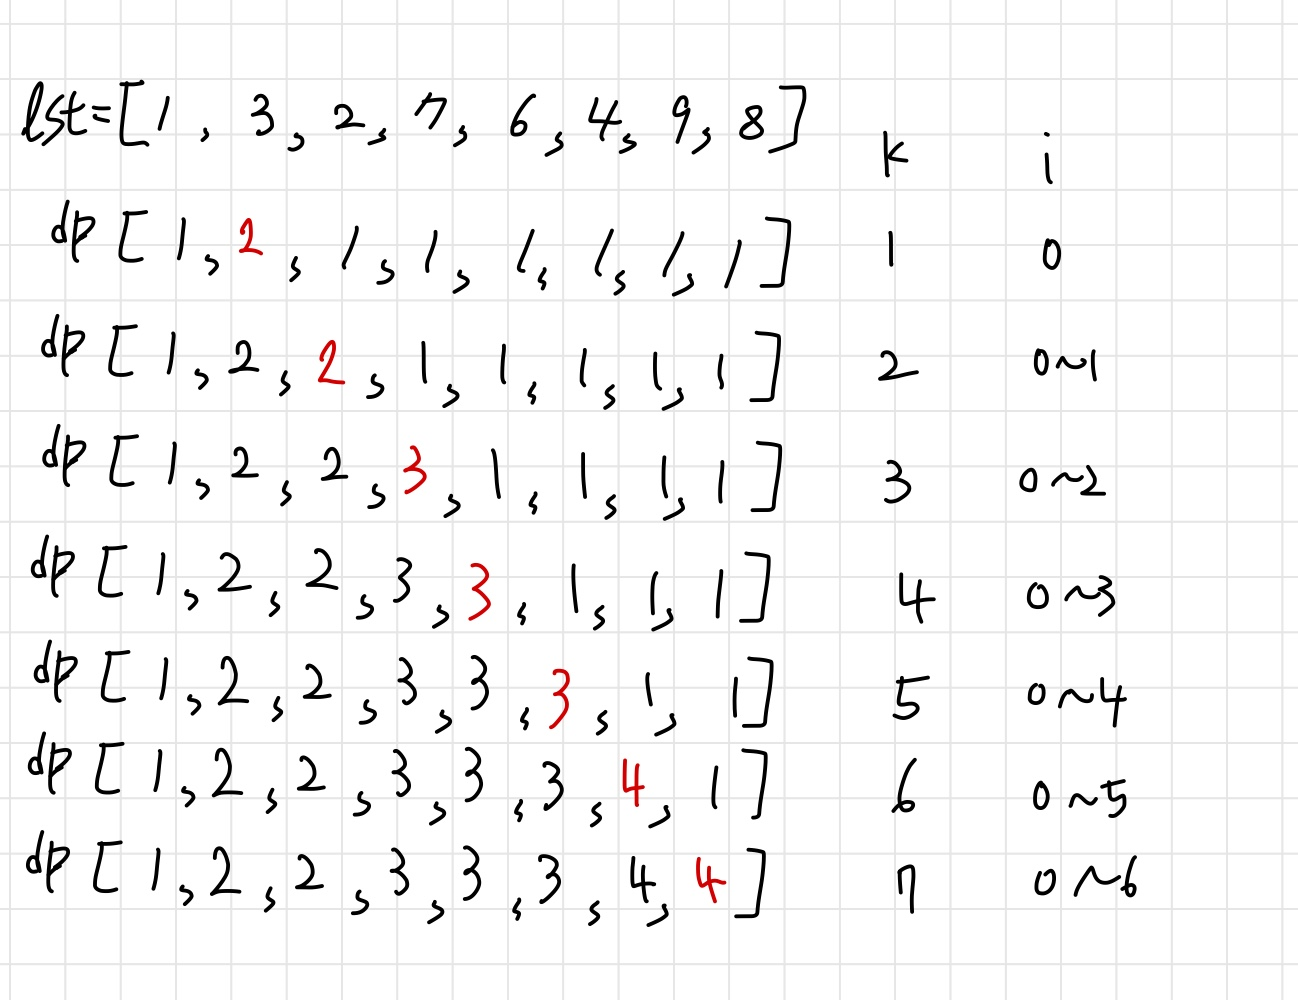 lst=[1, 3, 2, 7, 6, 4, 9, 8]
k i
dp [1, 2, 1, 1, 1, 1, 1, 1] 1 0
dp [1, 2, 2, 1, 1, 1, 1, 1] 2 0~1
dp [1, 2, 2, 3, 1, 1, 1, 1] 3 0~2
dp [1, 2, 2, 3, 3, 1, 1, 1] 4 0~3
dp [1, 2, 2, 3, 3, 3, 1, 1] 5 0~4
dp [1, 2, 2, 3, 3, 3, 4, 1] 6 0~5
dp [1, 2, 2, 3, 3, 3, 4, 4] 7 0~6